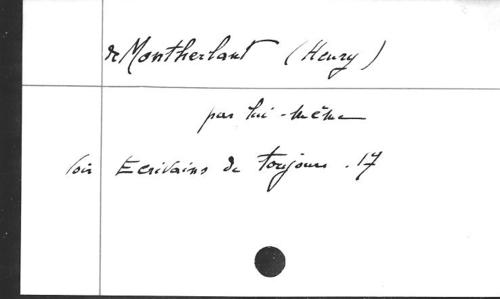 de Montherlant (Henry)
par lui-même
Voir Ecrivains de toujours . 17